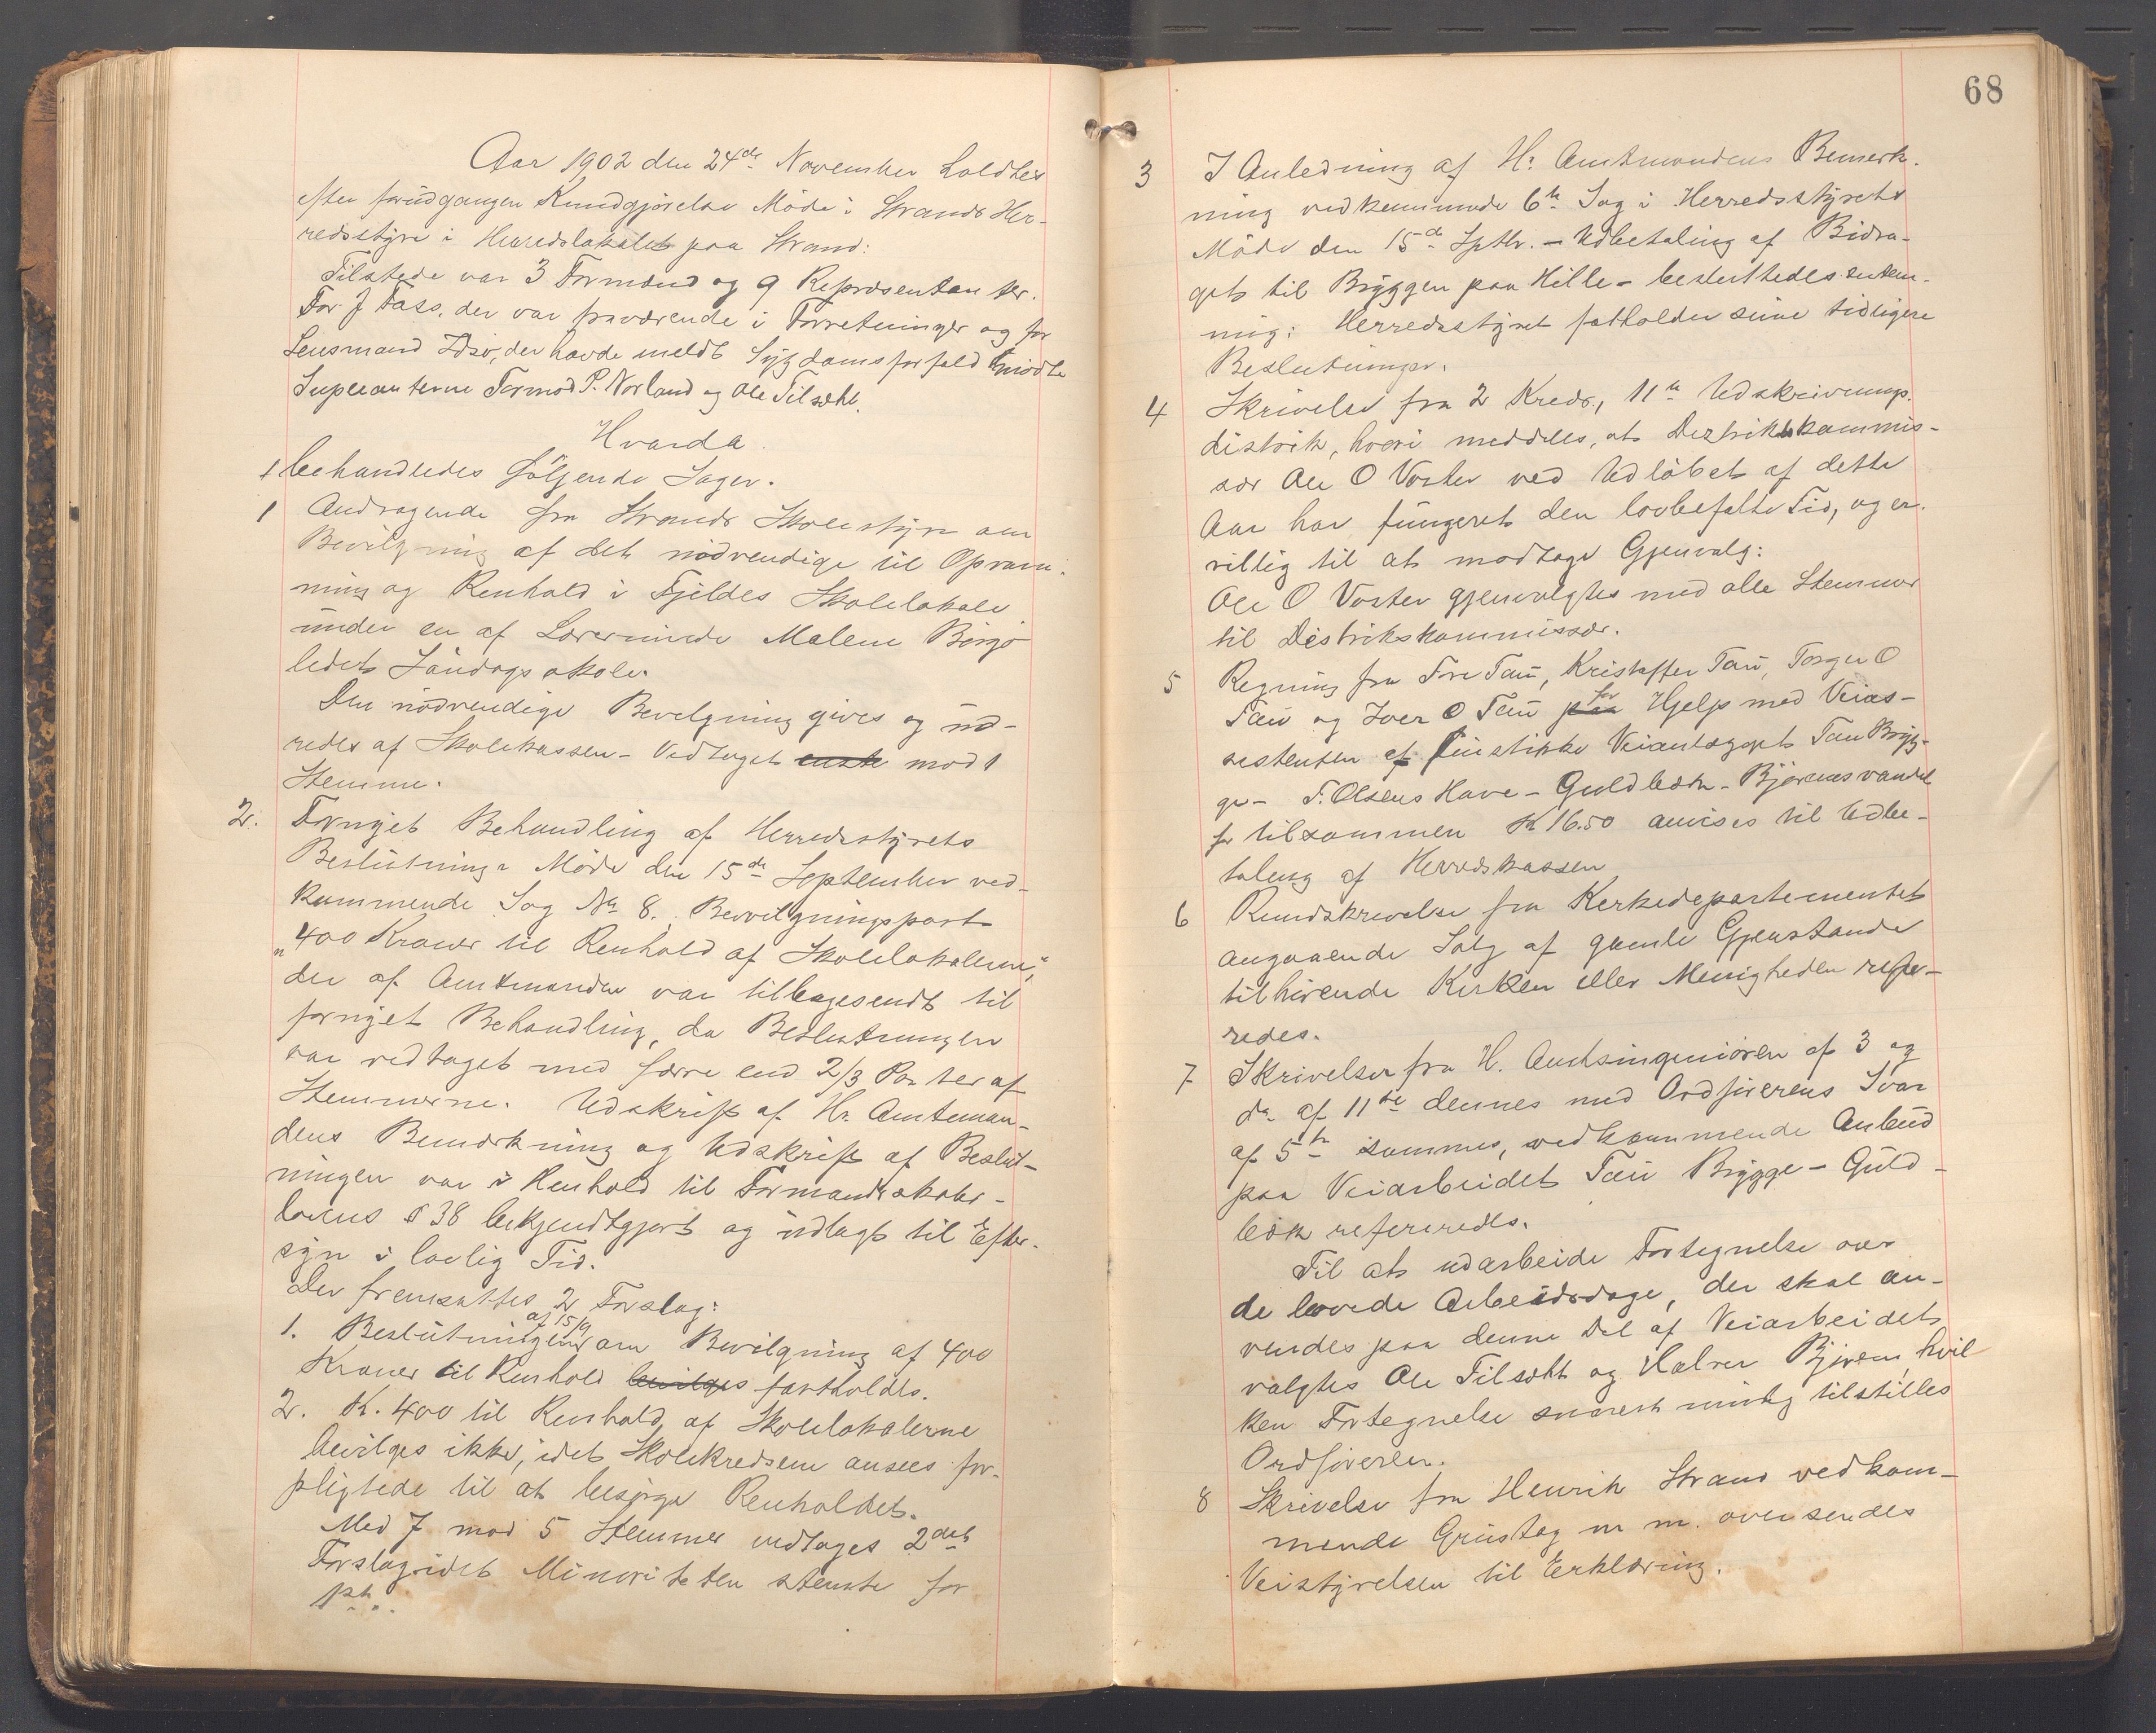 Aar 1902 den 24de November holdtes
efter forudgangen Kundgjørelse Møde i Strands Her-
redsstyre i Herredslokalet paa Strand:
Tilstede var 3 Formænd og 9 Repræsentanter.
For J Fass, der var fraværende i Forretninger og for
Lensmand Idsø, der havde meldt Sygdomsforfald mødte
Supleanterne Tormod P. Norland og Ole Tilsæht.
Hvorda
behandledes følgende Sager.
1 Andragende fra Strands Skolestyre om
Bevilgning af det nødvendige til Opvarm-
ning og Renhold i Fjeldes Skolelokale
under en af Lærerinde Malene Børgø
ledet Søndagsskole.
Den nødvendige Bevilgning gives og ud-
redes af Skolekassen - Vedtaget enst mod 1
Stemme.
2. Fornyet Behandling af Herredsstyrets
Beslutning i Møde den 15de September ved-
kommende Sag No 8. Bevilgningspost
"400 Kroner til Renhold af Skolelokalerne",
der af Amtmanden var tilbagesendt til
fornyet Behandling, da Beslutningen
var vedtaget med færre end 2/3 Parter af
Stemmerne. Udskrift af Hr. Amtman-
dens Bemærkning og Udskrift af Beslut-
ningen var i Henhold til Formandsskabs-
lovens § 38 bekjendtgjort og udlagt til Efter-
syn i lovlig Tid.
Der fremsattes 2 Forslag:
af 15/9
1. Beslutningen om Bevilgning af 400
Kroner til Renhold bevilges fastholdes.
2. K. 400 til Renhold af Skolelokalerne
bevilges ikke, idet Skolekredsene ansees for-
pligtede til at besørge Renholdet.
Med 7 mod 5 Stemmer vedtages 2det
Forslag idet Minoriteten stemte for
1ste.
68
3 I Anledning af Hr. Amtmandens Bemerk-
ning vedkommende 6te Sag i Herredsstyrets
Møde den 15de Sptbr. - Udbetaling af Bidra-
get til Bryggen paa Hille - besluttedes enstem-
mig: Herredsstyret fastholder sine tidligere
Beslutninger.
4 Skrivelse fra 2 Kreds, 11te Udskrivnings-
distrik, hvori meddeles, at Distriktskommis-
sær Ole O Voster ved Udløbet af dette
Aar har fungeret den lovbefalte Tid, og er
villig til at modtage Gjenvalg:
Ole O Voster gjenvalgtes med alle Stemmer
til Distrikskommissær.
5 Regning fra Tore Tau, Kristoffer Tau, Torger O
Tau og Iver O Tau paa for Hjelp med Veias-
sistenten af Linstikke Veianlægget Tau Bryg-
ge - T. Olsens Have - Guldbæk - Bjørensvandet
for tilsammen K 16.50 anvises til Udbe-
taling af Herredskassen
6 Rundskrivelse fra Kirkedepartementet
angaaende Salg af gamle Gjenstande
tilhørende Kirken eller Menigheden refer-
redes.
7 Skrivelser fra H. Amtsingeniøren af 3 og
do af 11te dennes med Ordførerens Svar
af 5te sammes, vedkommende Anbud
paa Veiarbeidet Tau Brygge - Guld-
bæk refereredes.
Til at udarbeide Fortegnelse over
de lovede Arbeidsdage, der skal an-
vendes paa denne Del af Veiarbeidet,
valgtes Ole Tilsæht og Halvor Bjøren, hvil
ken Fortegnelse snarest mulig tilstilles
Ordføreren.
8 Skrivelse fra Henrik Strand vedkom-
mende Grustag m m. oversendes
Veistyrelsen til Erklæring.